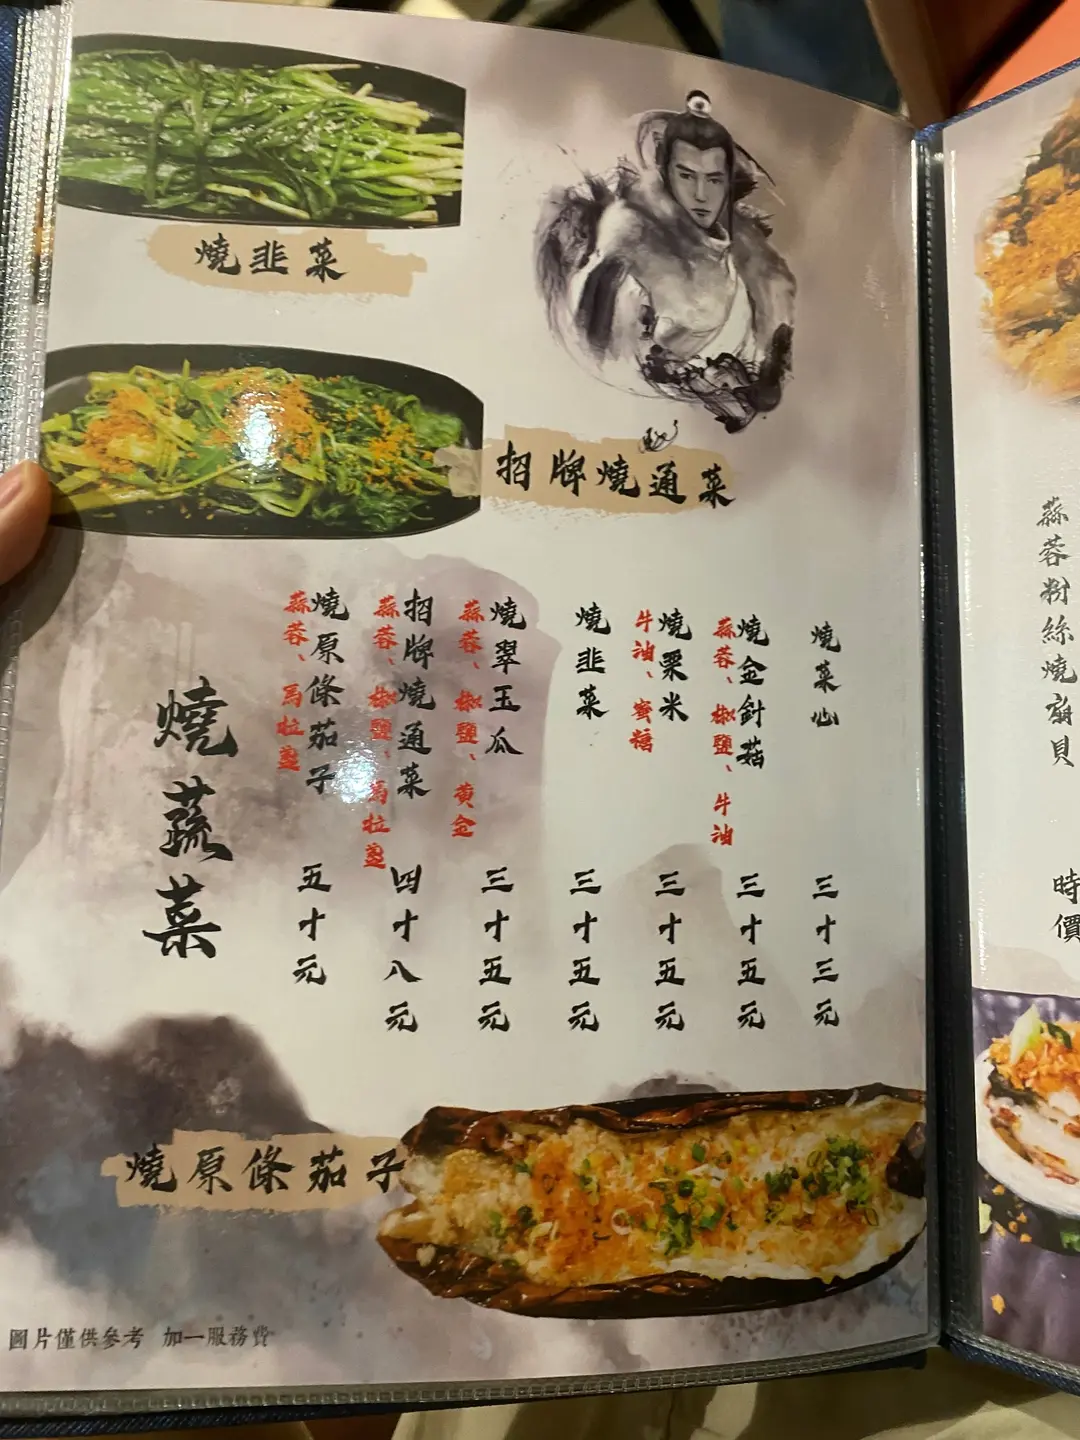 燒韭菜
招牌燒通菜
燒菜心
三十三元
燒金針菇
蒜蓉、椒鹽、牛油
三十五元
燒粟米
牛油、蜜糖
三十五元
燒韭菜
三十五元
燒翠玉瓜
蒜蓉、椒鹽、黃金
三十五元
招牌燒通菜
蒜蓉、椒鹽、馬拉盞
四十八元
燒原條茄子
蒜蓉、馬拉盞
五十元
燒蔬菜
燒原條茄子
圖片僅供參考 加一服務費
蒜蓉粉絲燒扇貝
時價